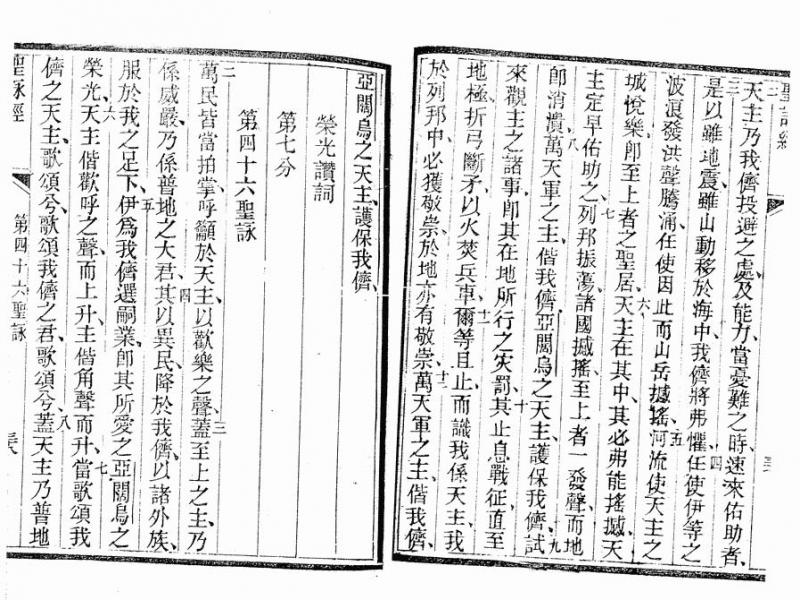 聖詠經
二
天主乃我儕投避之處、及能力、當憂難之時、速來佑助者、
三
是以雖地震、雖山動移於海中、我儕將弗懼、
四
任使伊等之
波浪發洪聲騰涌、任使因此而山岳撼搖、
五
河流使天主之
城悅樂、卽至上者之聖居、
六
天主在其中、其必弗能搖撼、天
主定早佑助之、
七
列邦振蕩、諸國撼搖、至上者一發聲、而地
卽消潰、
八
萬天軍之主、偕我儕、亞闊烏之天主、護保我儕、
九
試
來觀主之諸事、卽其在地所行之灾罰、
十
其止息戰征、直至
地極、折弓斷矛、以火焚兵車、
十一
爾等且止、而識我係天主、我
於列邦中、必獲敬崇、於地亦有敬崇、
十二
萬天軍之主、偕我儕、
亞闊烏之天主、護保我儕、
榮光讚詞
第七分
第四十六聖詠
二
萬民皆當拍掌、呼籲於天主、以歡樂之聲、
三
蓋至上之主、乃
係威嚴、乃係普地之大君、
四
其以異民、降於我儕、以諸外族、
服於我之足下、
五
伊爲我儕選嗣業、卽其所愛之亞闊烏之
榮光、
六
天主偕歡呼之聲而上升、主偕角聲而升、
七
當歌頌我
儕之天主、歌頌兮、歌頌我儕之君、歌頌兮、
八
蓋天主乃普地
聖詠經
第四十六聖詠